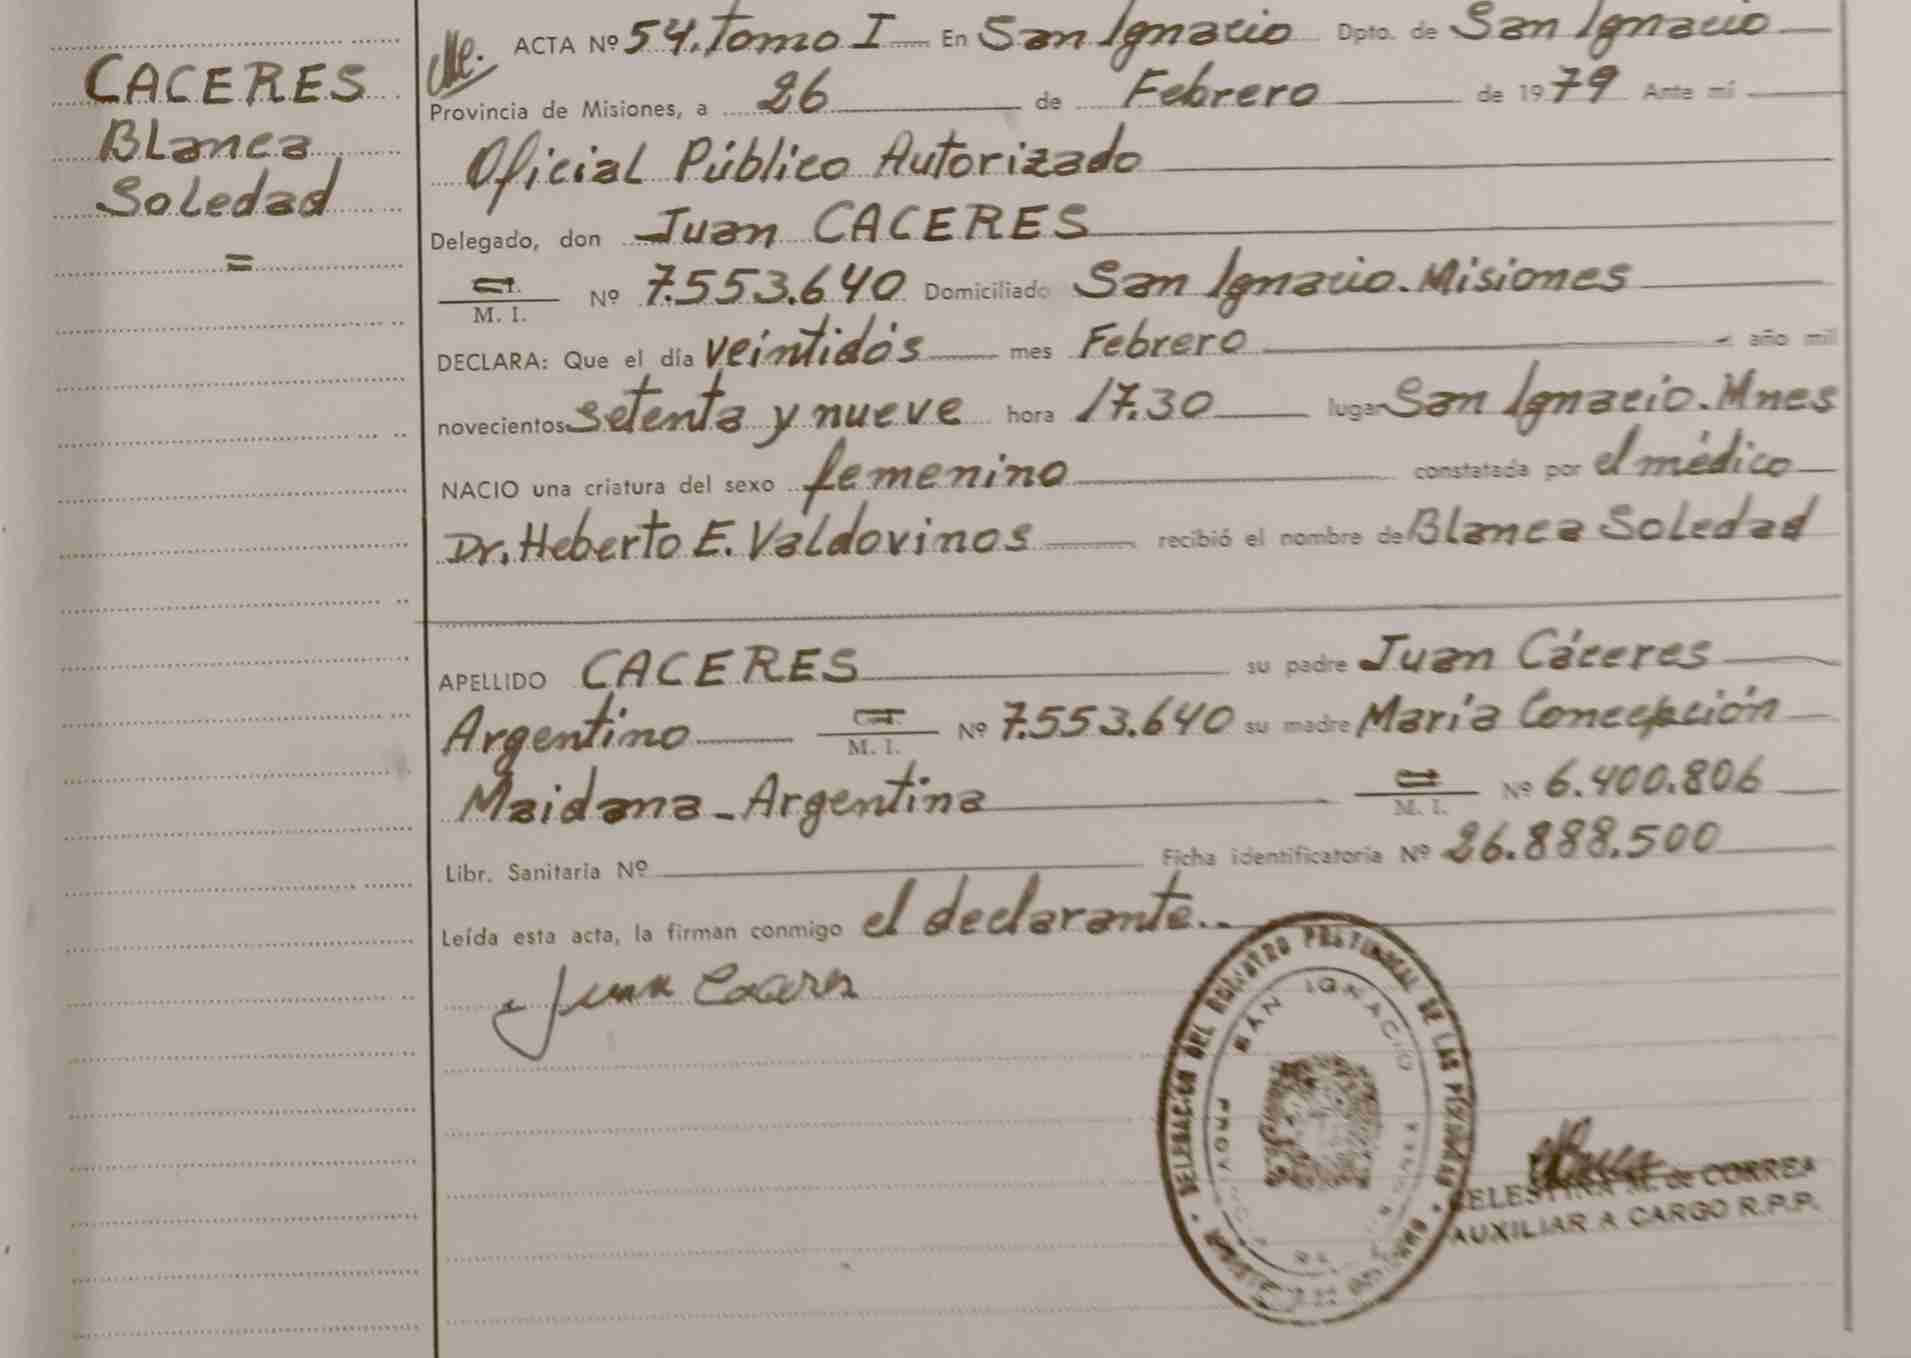 CACERES
Blanca
Soledad
=
ACTA Nº 54. Tomo I En San Ignacio Dpto. de San Ignacio
Provincia de Misiones, a 26 de Febrero de 1979 Ante mí
Oficial Público Autorizado
Delegado, don Juan CACERES
M. I. Nº 7.553.640 Domiciliado San Ignacio. Misiones
DECLARA: Que el día veintidós mes Febrero año mil
novecientos setenta y nueve hora 17.30 lugar San Ignacio. Mnes
NACIO una criatura del sexo femenino constatada por el médico
Dr. Heberto E. Valdovinos recibió el nombre de Blanca Soledad
APELLIDO CACERES su padre Juan Cáceres
Argentino M. I. Nº 7.553.640 su madre María Concepción
Maidana - Argentina M. I. Nº 6.400.806
Libr. Sanitaria Nº Ficha identificatoria Nº 26.888.500
Leída esta acta, la firman conmigo el declarante..
Juan Caceres
DELEGACION DEL REGISTRO PROVINCIAL DE LAS PERSONAS
SAN IGNACIO
CELESTINA M. de CORREA
AUXILIAR A CARGO R.P.P.